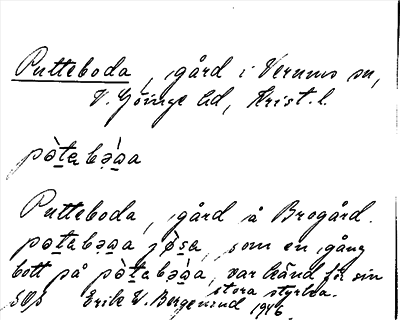 Putteboda, gård i Verums sn,
V. Göinge hd, Krist. l.
pòtabàa
Putteboda, gård å Brogård.
pòtabàa jòsa, som en gång
bott på pòtabàa, var känd för sin
stora styrka.
Erik W. Bergstrand 1946.